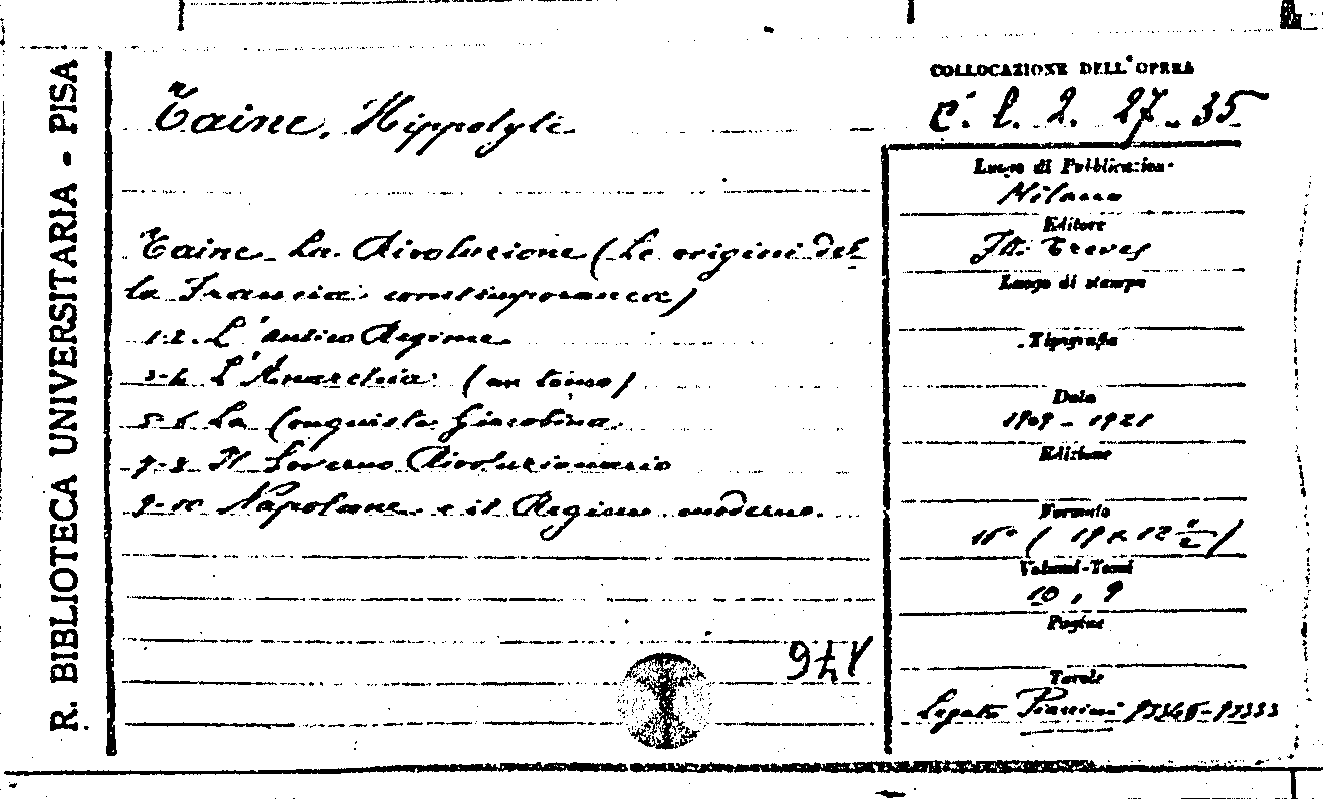 R. BIBLIOTECA UNIVERSITARIA - PISA
Taine, Hippolyte
Taine La Rivoluzione (Le origini del
la Francia contemporanea)
1-2. L'antico Regime
3-4 L'Anarchia (un tomo)
5-6 La Conquista Giacobina
7-8 Il Governo Rivoluzionario
9-10 Napoleone e il Regime moderno.
COLLOCAZIONE DELL'OPERA
C. l. 2. 27-35
Luogo di Pubblicazion.
Milano
Editore
Flli Treves
Luogo di stampa
Tipografia
Data
1909 - 1921
Edizione
Formato
16° (19 x 12 1/2)
Volumi-Tomi
10, 9
Pagine
Tavole
Legato
176